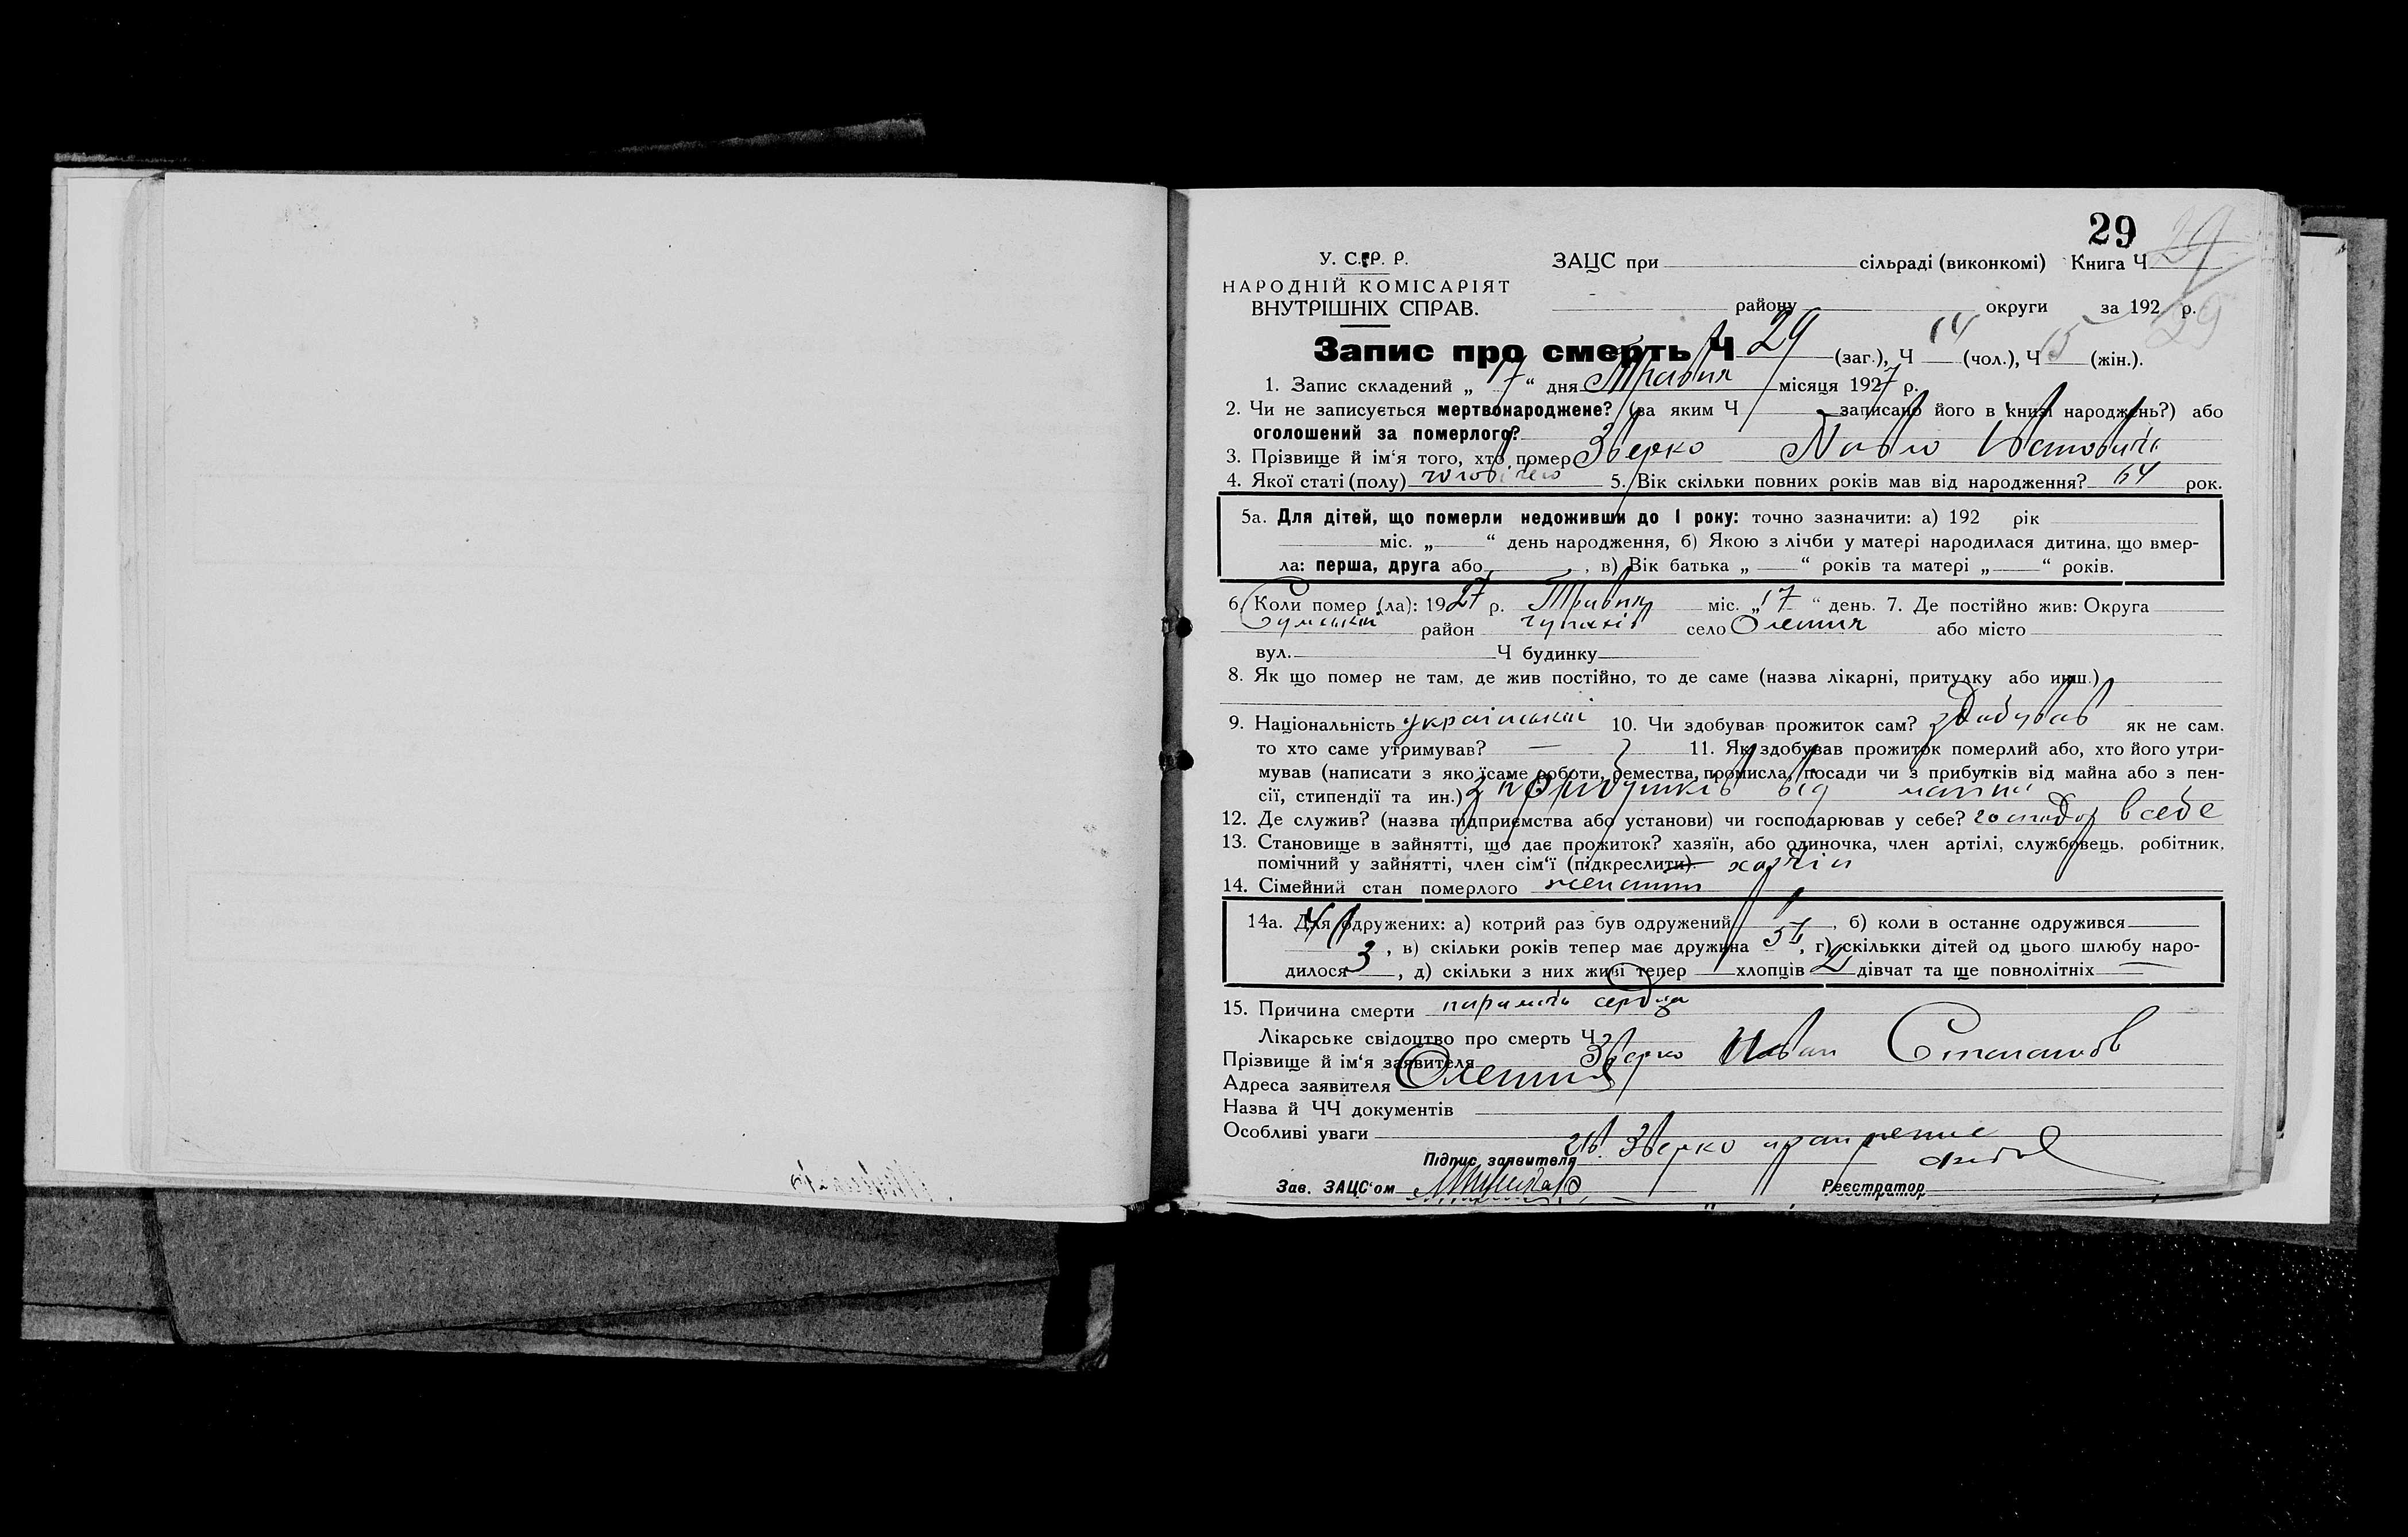 29 29
У. С. Р. Р. ЗАЦС при сільраді (виконкомі) Книга Ч
НАРОДНІЙ КОМІСАРІЯТ
ВНУТРІШНІХ СПРАВ. району округи за 192 р.
29
Запис про смерть Ч 29 (заг.), Ч 14 (чол.), Ч 15 (жін.).
1. Запис складений „ 17 “ дня Травня місяця 1927 р.
2. Чи не записується мертвонароджене? (за яким Ч записано його в книзі народжень?) або
оголошений за померлого?
3. Прізвище й ім‘я того, хто помер Зверко Павло
4. Якої статі (полу) чоловічего 5. Вік скільки повних років мав від народження? 64 рок.
5а. Для дітей, що померли недоживши до 1 року: точно зазначити: а) 192 рік
міс. „ “ день народження, б) Якою з лічби у матері народилася дитина, що вмер-
ла: перша, друга або , в) Вік батька „ “ років та матері „ “ років.
6. Коли помер (ла): 1927 р. Травня міс. „17“ день. 7. Де постійно жив: Округа
Сумській район село або місто
вул. Ч будинку
8. Як що помер не там, де жив постійно, то де саме (назва лікарні, притулку або инш.)
9. Національність український 10. Чи здобував прожиток сам? здобував як не сам.
то хто саме утримував? — 11. Як здобував прожиток померлий або, хто його утри-
мував (написати з якої саме роботи, ремества, промисла, посади чи з прибутків від майна або з пен-
сії, стипендії та ин.) з прибутків від майна
12. Де служив? (назва підприємства або установи) чи господарював у себе? господар в себе
13. Становище в зайнятті, що дає прожиток? хазяїн, або одиночка, член артілі, службовець, робітник,
помічний у зайнятті, член сім‘ї (підкреслити). хазяін
14. Сімейний стан померлого женатий
14а. Для одружених: а) котрий раз був одружений 1, б) коли в останнє одружився
, в) скільки років тепер має дружина , г) скількки дітей од цього шлюбу наро-
дилося 3, д) скільки з них живі тепер хлопців 2 дівчат та ще повнолітніх —
15. Причина смерти параліч сердца
Лікарське свідоцтво про смерть Ч
Прізвище й ім‘я заявителя Зверко Иван Степанов
Адреса заявителя
Назва й ЧЧ документів
Особливі уваги
Підпис заявителя Зверко
Зав. ЗАЦС‘ом Реєстратор